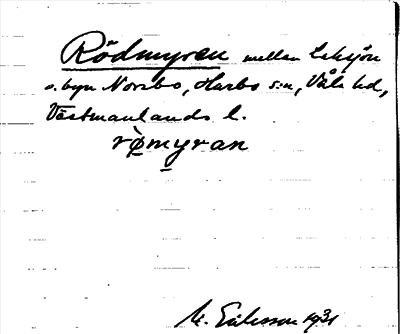 Rödmyren mellan Leksjön
o. byn Norrbo, Harbo s:n, Våla hd,
Västmanlands l.
rø̀myran
M. Eriksson 1931